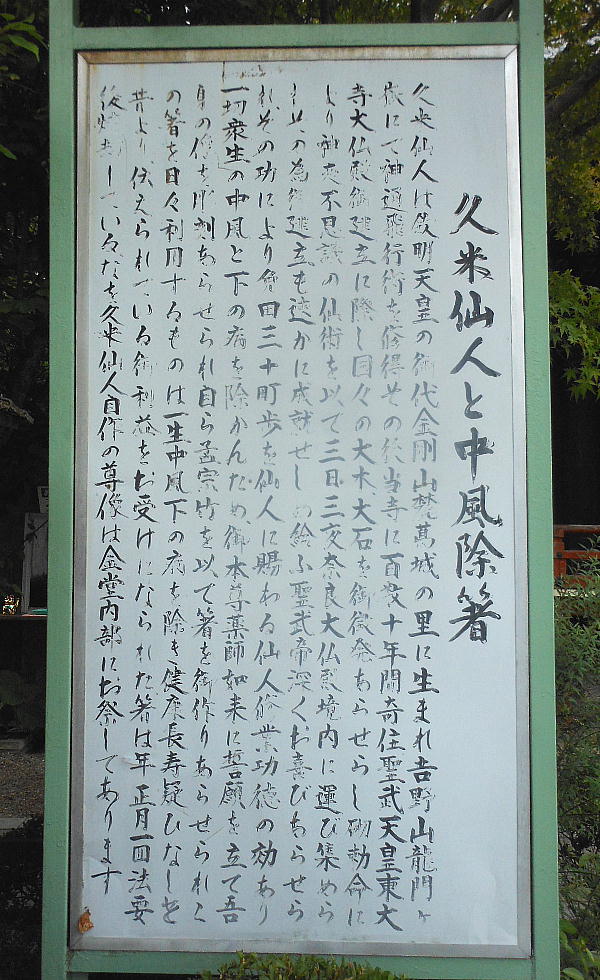 久米仙人と中風除箸
久米仙人は欽明天皇の御代金剛山麓葛城の里に生まれ吉野山龍門ヶ
嶽にて神通飛行術を修得その後当寺に百数十年間寄住聖武天皇東大
寺大仏殿御建立に際し国々の大木、大石を御徴発あらせらし砌勅命に
より神変不思議の仙術を以て三日三夜奈良大仏殿境内に運び集めら
しその為御建立も速かに成就せしめ給ふ聖武帝深くお喜びあらせら
れその功により免田三十町歩を仙人に賜わる仙人修業功徳の効あり
一切衆生の中風と下の病を除かんため、御本尊薬師如来に誓願を立て吾
身の像を彫刻あらせられ自ら孟宗竹を以て箸を御作りあらせられこ
の箸を日々利用するものは一生中風下の病を除き健康長寿疑ひなしと
昔より、伝えられている御利益をお受けになられた箸は年正月一回法要
後焼却しているなを久米仙人自作の尊像は金堂内部にお祭してあります